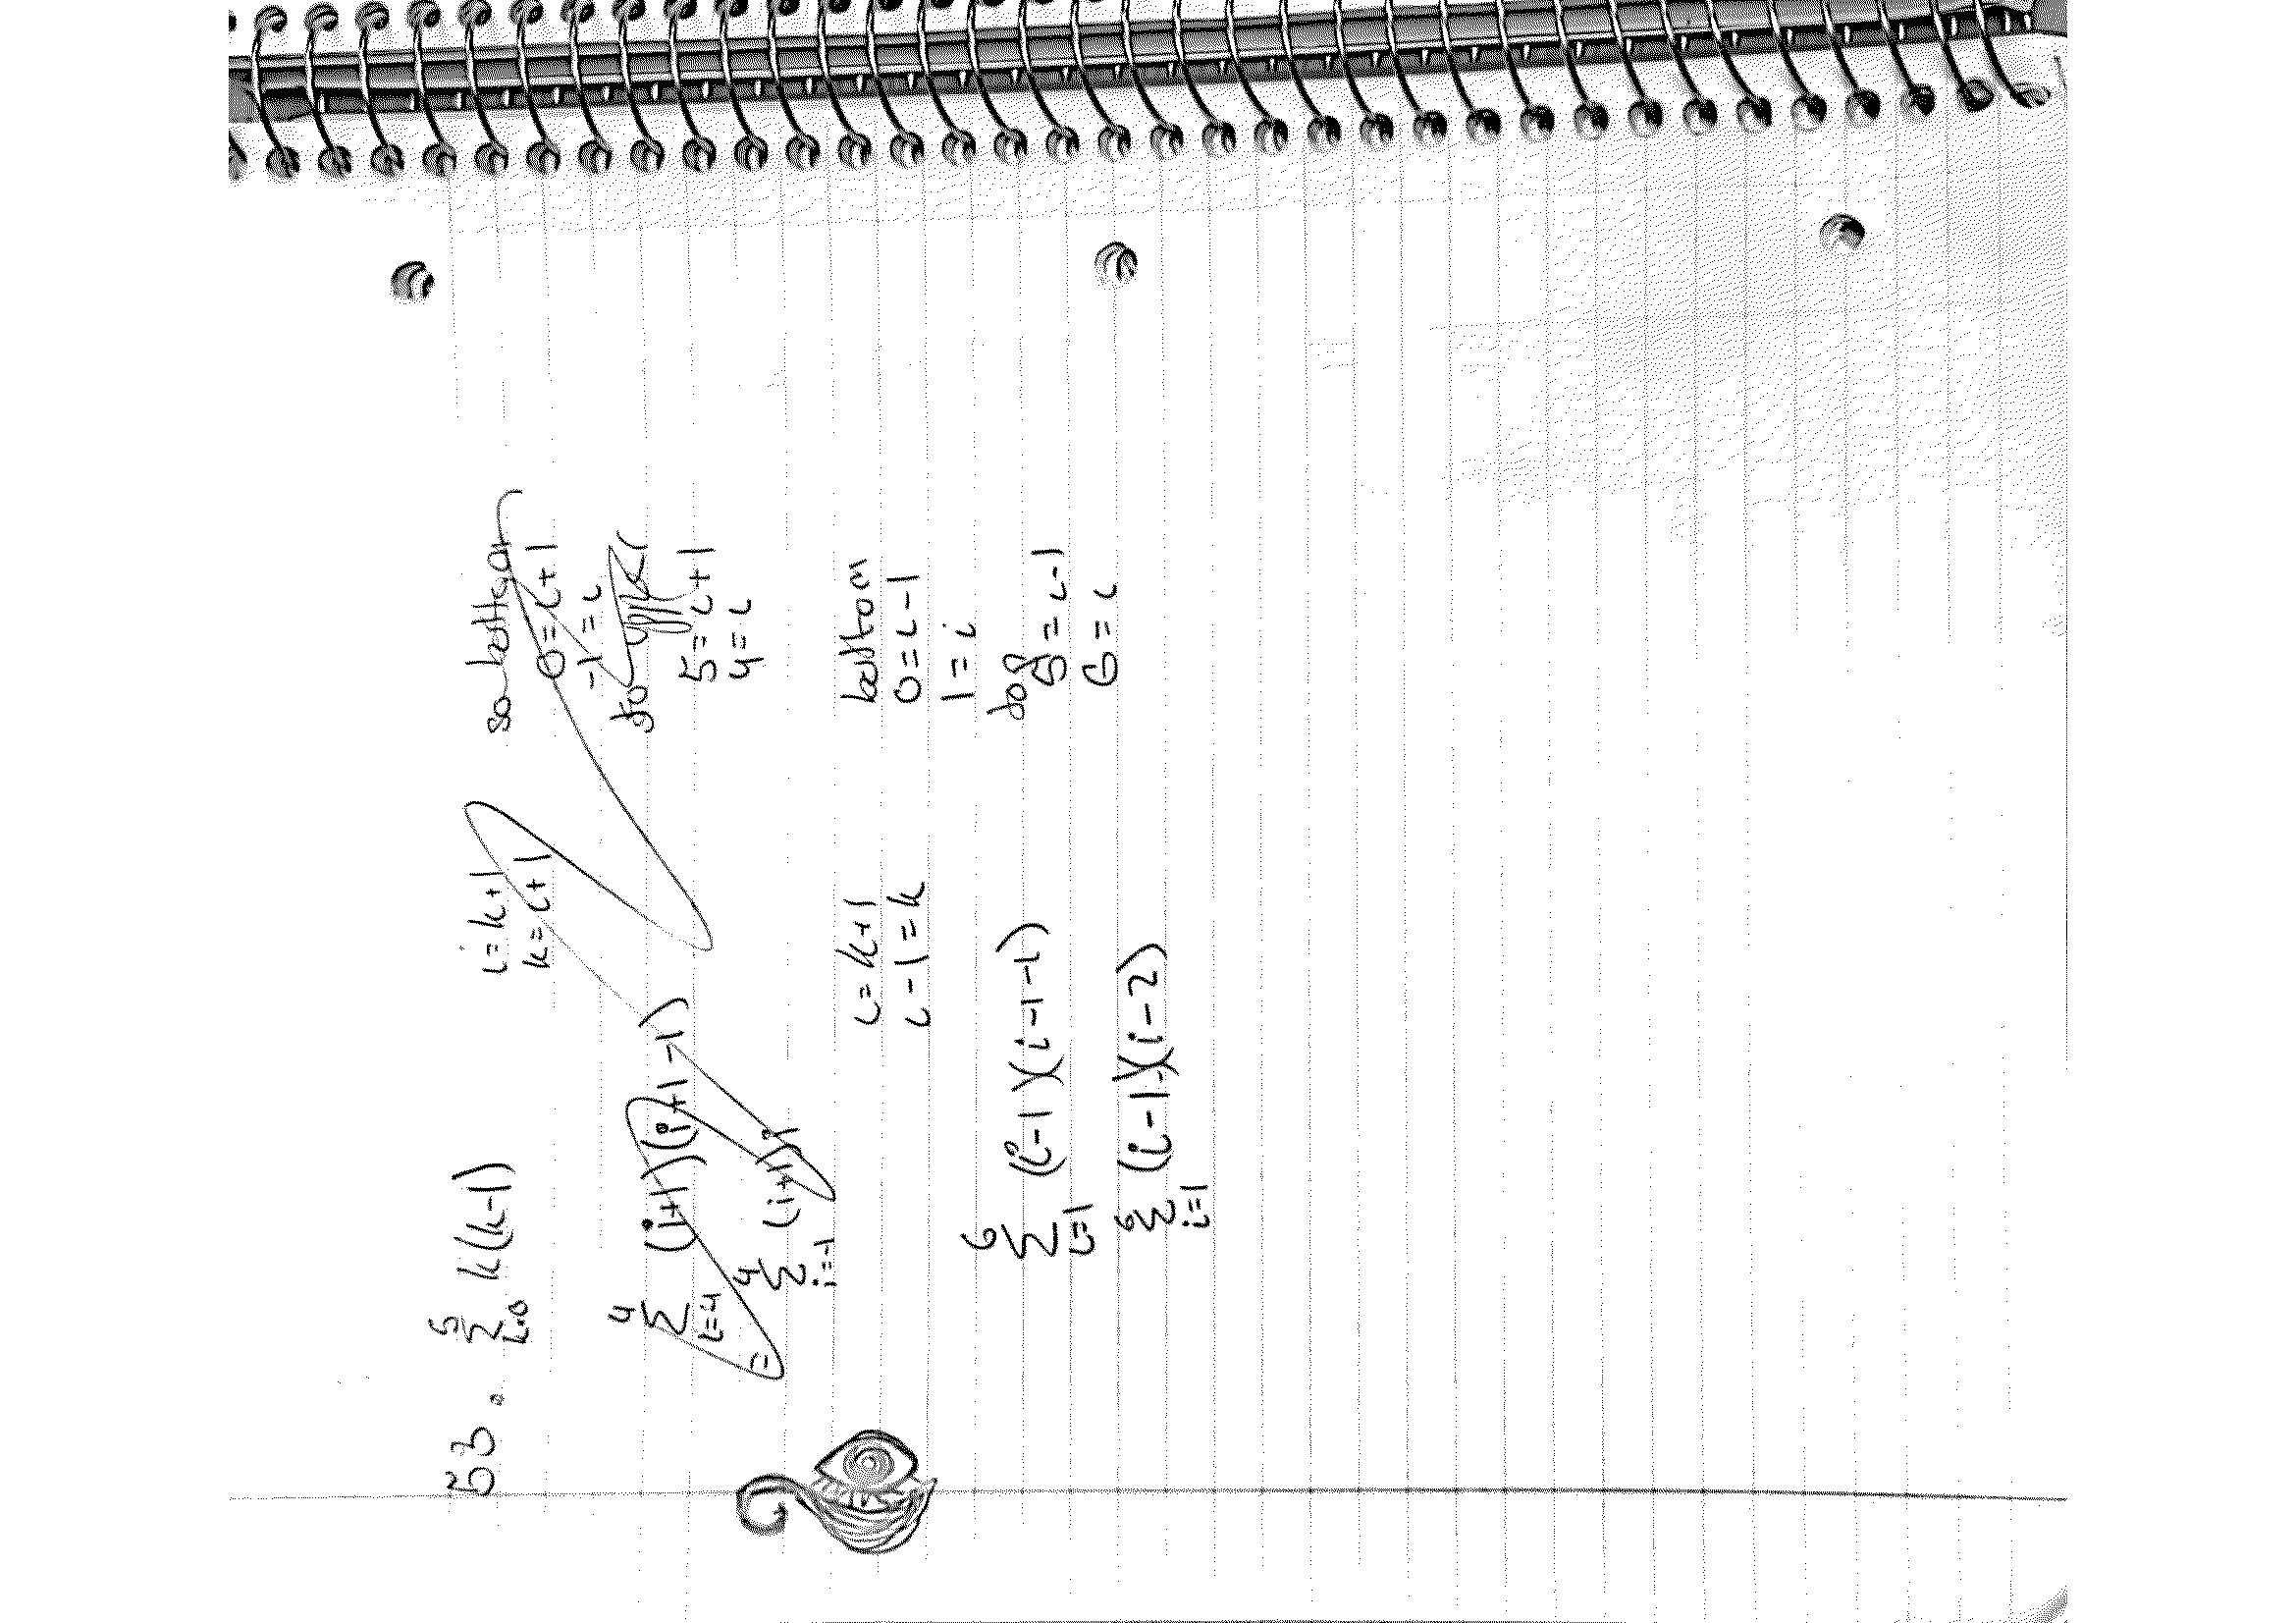 53. 5∑k=0 k(k-1)
i=k+1
k=i+1
so bottom
0=i+1
-1=i
to upper
5=i+1
4=i
4∑i=4 (i+1)(i+1-1)
= 4∑i=-1 (i+1)i
i=k+1
i-1=k
bottom
0=i-1
1=i
top
5=i-1
6=i
6∑i=1 (i-1)(i-1-1)
6∑i=1 (i-1)(i-2)